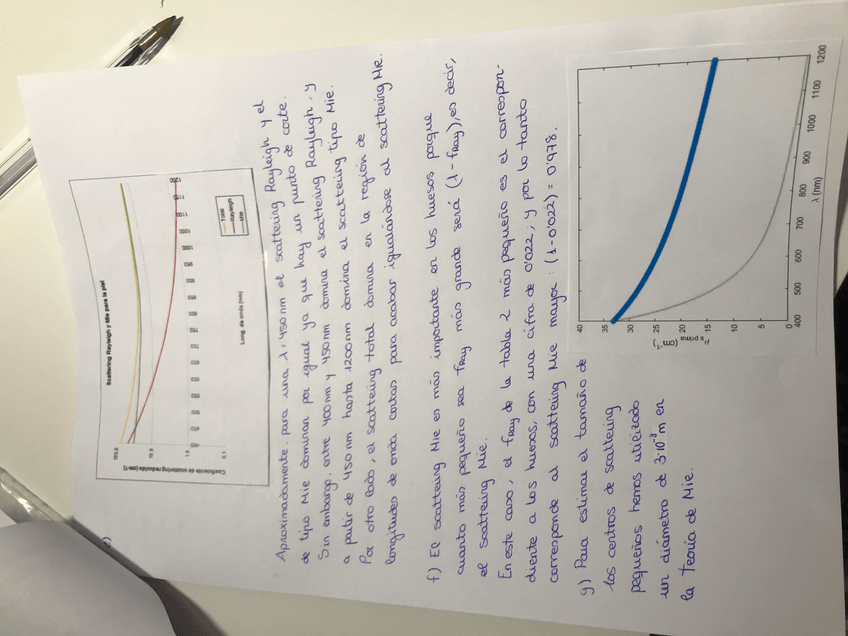 e)
Scattering Rayleigh y Mie para la piel
Coeficiente de scattering reducido (cm-1)
100.0
10.0
1.0
0.1
400
450
500
550
600
650
700
750
800
850
900
950
1000
1050
1100
1150
1200
Long. de onda (nm)
Total
Rayleigh
Mie
Aproximadamente, para una λ=450nm el scattering Rayleigh y el
de tipo Mie dominan por igual ya que hay un punto de corte.
Sin embargo, entre 400nm y 450nm domina el scattering Rayleigh, y
a partir de 450nm hasta 1200nm domina el scattering tipo Mie.
Por otro lado, el scattering total domina en la región de
longitudes de onda cortas para acabar igualándose al scattering Mie.
f) El scattering Mie es más importante en los huesos porque
cuanto más pequeño sea fRay más grande será (1-fRay), es decir,
el scattering Mie.
En este caso, el fRay de la tabla 2 más pequeño es el correspon-
diente a los huesos, con una cifra de 0'022; y por lo tanto
corresponde al scattering Mie mayor: (1-0'022) = 0'978.
g) Para estimar el tamaño de
los centros de scattering
pequeños hemos utilizado
un diámetro de 3·10⁻⁸m en
la Teoría de Mie.
40
35
30
25
20
15
10
5
0
μ's prima (cm⁻¹)
400
500
600
700
800
900
1000
1100
1200
λ (nm)